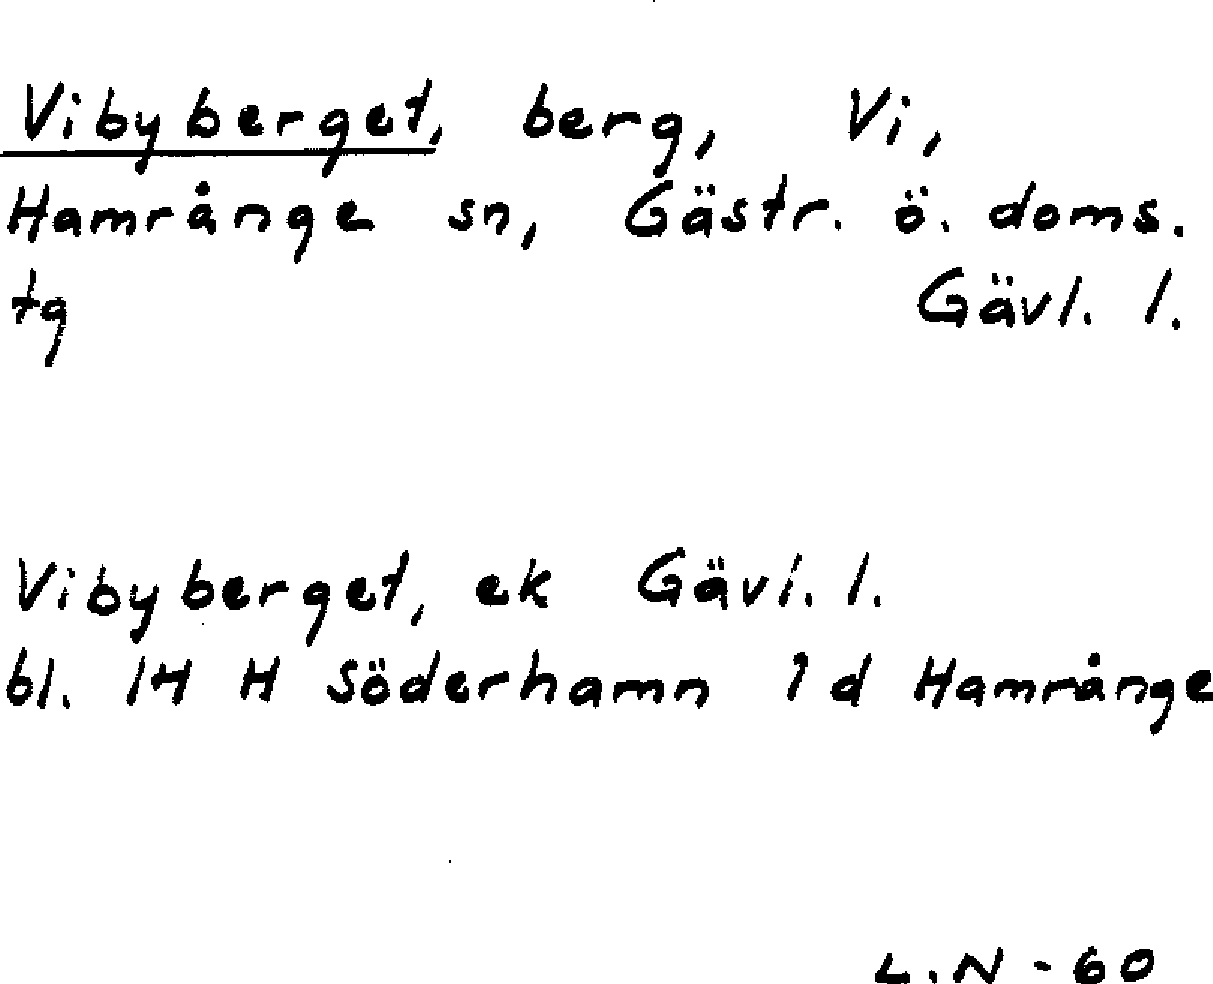 Vibyberget, berg, Vi,
Hamrånge sn, Gästr. ö. doms.
tg Gävl. l.
Vibyberget, ek Gävl. l.
bl. 14 H Söderhamn 1 d Hamrånge
L.N - 60